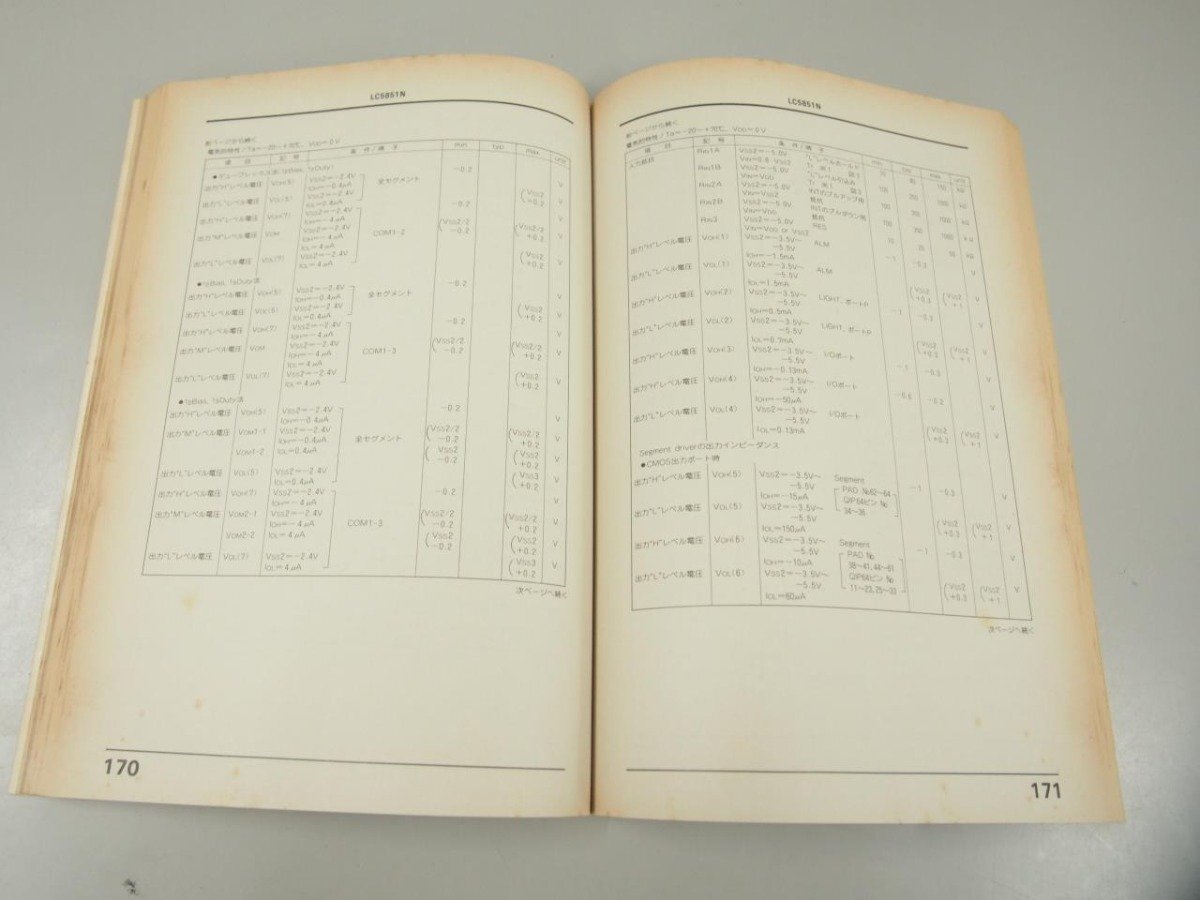 LC5851N
前ページから続く
電気的特性/Ta=-20~+70℃, VDD=0V
項 目 記 号 条 件 / 端 子 min. typ. max. unit
出力"H"レベル電圧 VOH(5) VSS2=-2.4V 全セグメント -0.2 V
IOH=-0.4μA
出力"L"レベル電圧 VOL(5) VSS2=-2.4V (VSS2 V
IOL=0.4μA +0.2
出力"H"レベル電圧 VOH(7) VSS2=-2.4V -0.2 V
IOH=-4μA
出力"M"レベル電圧 VOM VSS2=-2.4V COM1-2 (VSS2/2 (VSS2/2 V
IOL=4μA -0.2 +0.2
出力"L"レベル電圧 VOL(7) VSS2=-2.4V (VSS2 V
IOL=4μA +0.2
出力"H"レベル電圧 VOH(5) VSS2=-2.4V 全セグメント -0.2 V
IOH=-0.4μA
出力"L"レベル電圧 VOL(5) VSS2=-2.4V (VSS2 V
IOL=0.4μA +0.2
出力"H"レベル電圧 VOH(7) VSS2=-2.4V -0.2 V
IOH=-4μA
出力"M"レベル電圧 VOM VSS2=-2.4V COM1-3 (VSS2/2 (VSS2/2 V
IOL=4μA -0.2 +0.2
出力"L"レベル電圧 VOL(7) VSS2=-2.4V (VSS2 V
IOL=4μA +0.2
出力"H"レベル電圧 VOH(5) VSS2=-2.4V -0.2 V
IOH=-0.4μA
出力"M"レベル電圧 VOM1-1 VSS2=-2.4V 全セグメント (VSS2/2 (VSS2/2 V
IOL=0.4μA -0.2 +0.2
VOM1-2 (VSS2 (VSS2 V
-0.2 +0.2
出力"L"レベル電圧 VOL(5) VSS2=-2.4V (VSS3 V
IOL=0.4μA +0.2
出力"H"レベル電圧 VOH(7) VSS2=-2.4V -0.2 V
IOH=-4μA
出力"M"レベル電圧 VOM2-1 VSS2=-2.4V COM1-3 (VSS2/2 (VSS2/2 V
IOL=4μA -0.2 +0.2
VOM2-2 (VSS2 (VSS2 V
-0.2 +0.2
出力"L"レベル電圧 VOL(7) VSS2=-2.4V (VSS3 V
IOL=4μA +0.2
次ページへ続く
170
LC5851N
前ページから続く
電気的特性/Ta=-20~+70℃, VDD=0V
項 目 記 号 条 件 / 端 子 min. typ. max. unit
入力抵抗 RIN1A VSS2=-5.0V
RIN1B VSS2=-5.0V
VIN=VDD
RIN2A VSS2=-5.0V
VIN=VSS2
RIN2B VSS2=-5.0V
VIN=VDD
RIN3 VSS2=-5.0V RES
VIN=VDD or VSS2
出力"H"レベル電圧 VOH(1) VSS2=-3.5V~ ALM -1 -0.3 V
-5.5V
IOH=-1.5mA
出力"L"レベル電圧 VOL(1) VSS2=-3.5V~ ALM (VSS2 (VSS2 V
-5.5V +0.3 +1
IOL=1.5mA
出力"H"レベル電圧 VOH(2) VSS2=-3.5V~ LIGHT, ポートP -1 -0.3 V
-5.5V
出力"L"レベル電圧 VOL(2) VSS2=-3.5V~ LIGHT, ポートP (VSS2 (VSS2 V
-5.5V +0.3 +1
IOL=0.7mA
出力"H"レベル電圧 VOH(3) VSS2=-3.5V~ I/Oポート -1 -0.3 V
-5.5V
IOH=-0.13mA
出力"H"レベル電圧 VOH(4) VSS2=-3.5V~ I/Oポート -0.6 -0.2 V
-5.5V
IOH=-50μA
出力"L"レベル電圧 VOL(4) VSS2=-3.5V~ I/Oポート (VSS2 (VSS2 V
-5.5V +0.3 +1
IOL=0.13mA
Segment driverの出力インピーダンス
●CMOS出力ポート時
出力"H"レベル電圧 VOH(5) VSS2=-3.5V~ Segment -1 -0.3 V
-5.5V PAD №62~64
IOH=-15μA QIP64ピン №
出力"L"レベル電圧 VOL(5) VSS2=-3.5V~ 34~36 (VSS2 (VSS2 V
-5.5V +0.3 +1
IOL=150μA
出力"H"レベル電圧 VOH(6) VSS2=-3.5V~ Segment -1 -0.3 V
-5.5V PAD №
IOH=-10μA 38~41, 44~61
出力"L"レベル電圧 VOL(6) VSS2=-3.5V~ QIP64ピン № (VSS2 (VSS2 V
-5.5V 11~23, 25~33 +0.3 +1
IOL=60μA
次ページへ続く
171